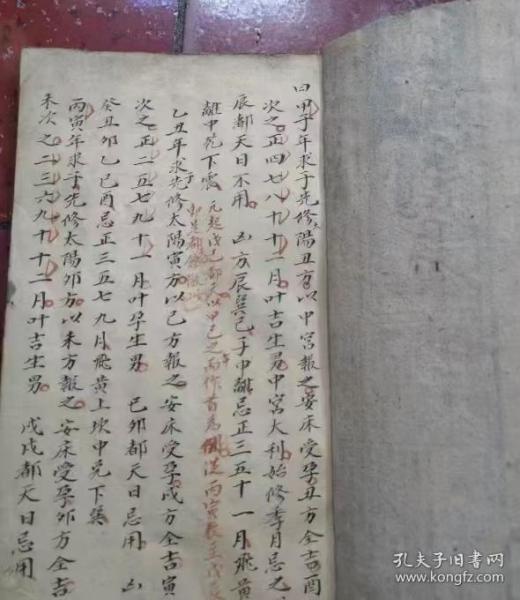 曰甲子年求子先修太陽丑方以中宮報之安床受孕丑方全吉酉
次之正四七八九十二月叶吉生男中宮大利始修季月忌之
辰都天日不用 凶方辰巽己子中離忌正三五十一月飛黃
離中兌下震
乙丑年求子先修太陽寅方以己方報之安床受孕戌方全吉寅
次之正二五七九十一月叶孕生男 己卯都天日忌用 凶
癸丑卯乙巳酉忌正三五七九月飛黃上坎中兌下巽
丙寅年求子先修太陽卯方以未方報之安床受孕卯方全吉
未次之二三六九十十二月叶吉生男 戊戌都天日忌用
孔夫子旧书网
www.kongfz.com